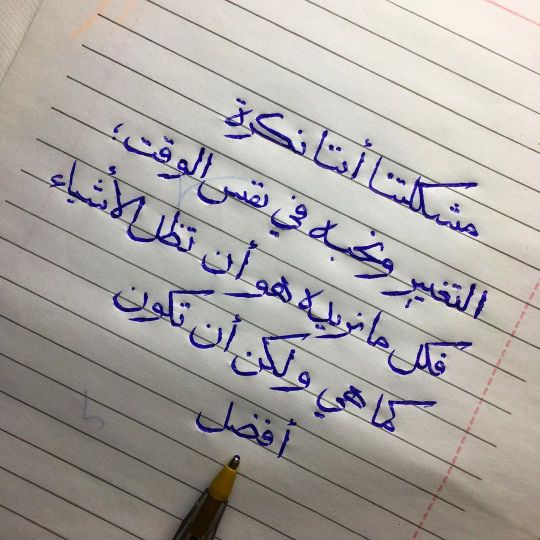 مشكلتنا أننا نكرة
التغيير ونحبه في نفس الوقت؛
فكل ما نريده هو أن تظل الأشياء
كما هي ولكن أن تكون
أفضل